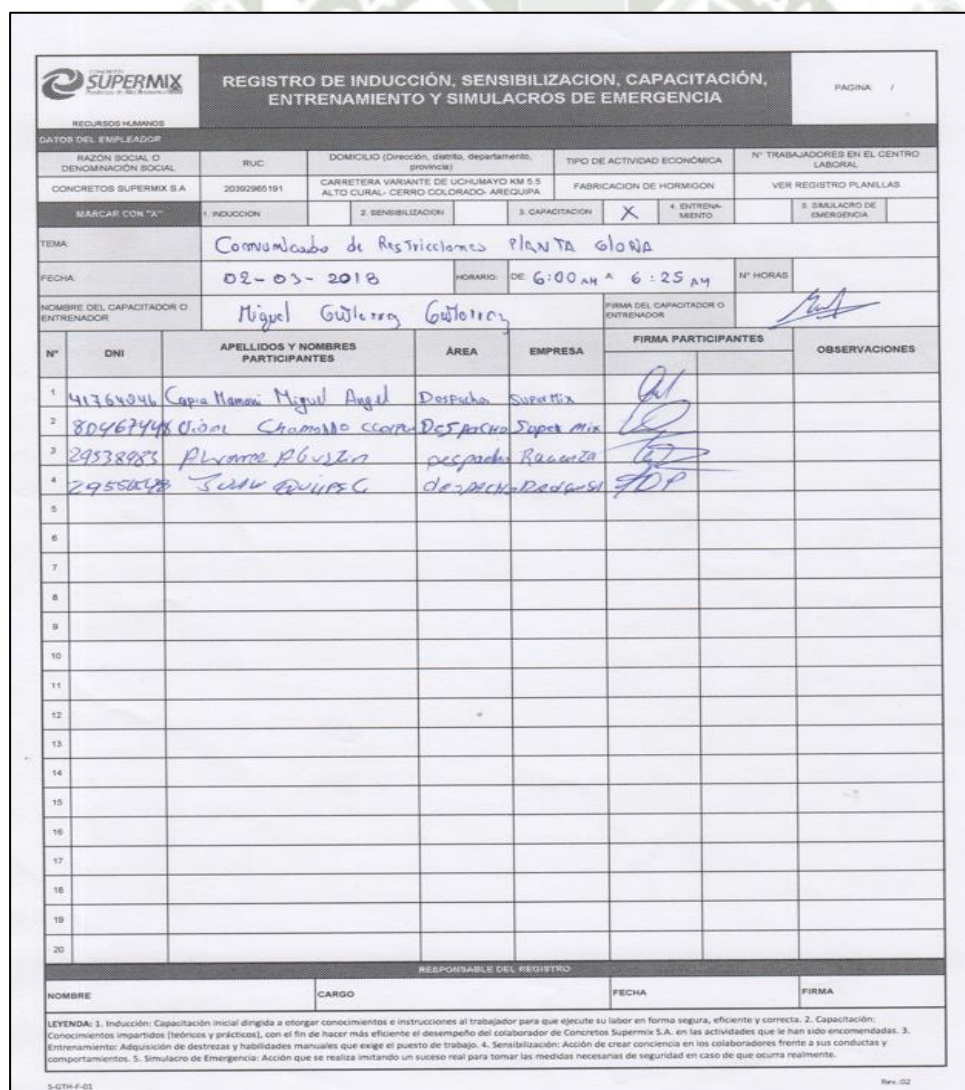 SUPERMIX
RECURSOS HUMANOS
REGISTRO DE INDUCCIÓN, SENSIBILIZACION, CAPACITACIÓN,
ENTRENAMIENTO Y SIMULACROS DE EMERGENCIA
PAGINA: /
DATOS DEL EMPLEADOR
RAZÓN SOCIAL O DENOMINACIÓN SOCIAL RUC DOMICILIO (Dirección, distrito, departamento, provincia) TIPO DE ACTIVIDAD ECONÓMICA N° TRABAJADORES EN EL CENTRO LABORAL
CONCRETOS SUPERMIX S.A 20392965191 CARRETERA VARIANTE DE UCHUMAYO KM 5.5 ALTO CURAL- CERRO COLORADO- AREQUIPA FABRICACION DE HORMIGON VER REGISTRO PLANILLAS
MARCAR CON "X" 1. INDUCCION 2. SENSIBILIZACION 3. CAPACITACION X 4. ENTRENA-MIENTO 5. SIMULACRO DE EMERGENCIA
TEMA: Comunicado de Restricciones PLANTA GLORIA
FECHA: 02-03-2018 HORARIO: DE: 6:00 AM A: 6:25 AM N° HORAS
NOMBRE DEL CAPACITADOR O ENTRENADOR Miguel Gutierrez Gutierrez FIRMA DEL CAPACITADOR O ENTRENADOR
N° DNI APELLIDOS Y NOMBRES PARTICIPANTES ÁREA EMPRESA FIRMA PARTICIPANTES OBSERVACIONES
1 Mamani Miguel Angel Despacho SuperMix
2 Despacho Super Mix
3 29538983 despacho
4 despacho
5
6
7
8
9
10
11
12
13
14
15
16
17
18
19
20
RESPONSABLE DEL REGISTRO
NOMBRE CARGO FECHA FIRMA
LEYENDA: 1. Inducción: Capacitación inicial dirigida a otorgar conocimientos e instrucciones al trabajador para que ejecute su labor en forma segura, eficiente y correcta. 2. Capacitación:
Conocimientos impartidos (teóricos y prácticos), con el fin de hacer más eficiente el desempeño del colaborador de Concretos Supermix S.A. en las actividades que le han sido encomendadas. 3.
Entrenamiento: Adquisición de destrezas y habilidades manuales que exige el puesto de trabajo. 4. Sensibilización: Acción de crear conciencia en los colaboradores frente a sus conductas y
comportamientos. 5. Simulacro de Emergencia: Acción que se realiza imitando un suceso real para tomar las medidas necesarias de seguridad en caso de que ocurra realmente.
S-GTH-F-01
Rev.:02